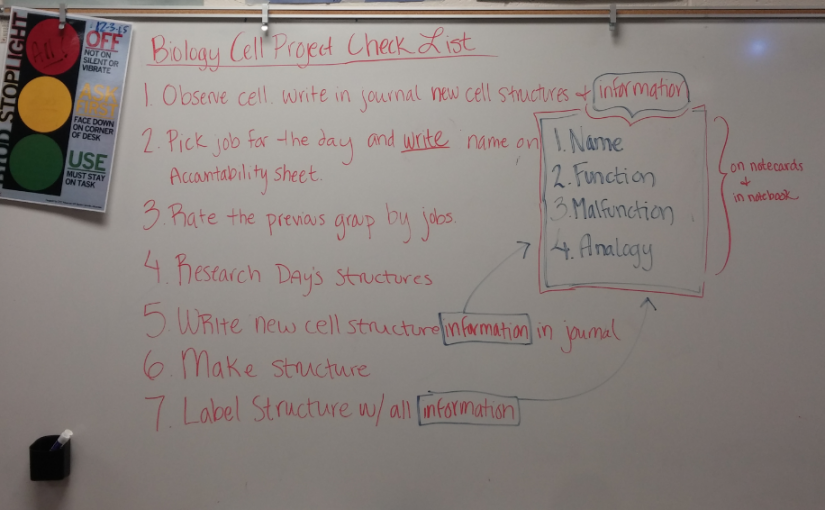 12-3-15
STOPLIGHT
OFF
NOT ON
SILENT OR
VIBRATE
ASK
FIRST
FACE DOWN
ON CORNER
OF DESK
USE
MUST STAY
ON TASK
Biology Cell Project Check List
1. Observe cell. write in journal new cell structures + information
2. Pick job for the day and write name on
Accountability sheet.
3. Rate the previous group by jobs.
4. Research DAy's structures
5. WRite new cell structure information in journal
6. Make structure
7. Label Structure w/ all information
1. Name
2. Function
3. Malfunction
4. Analogy
on notecards
+
in notebook